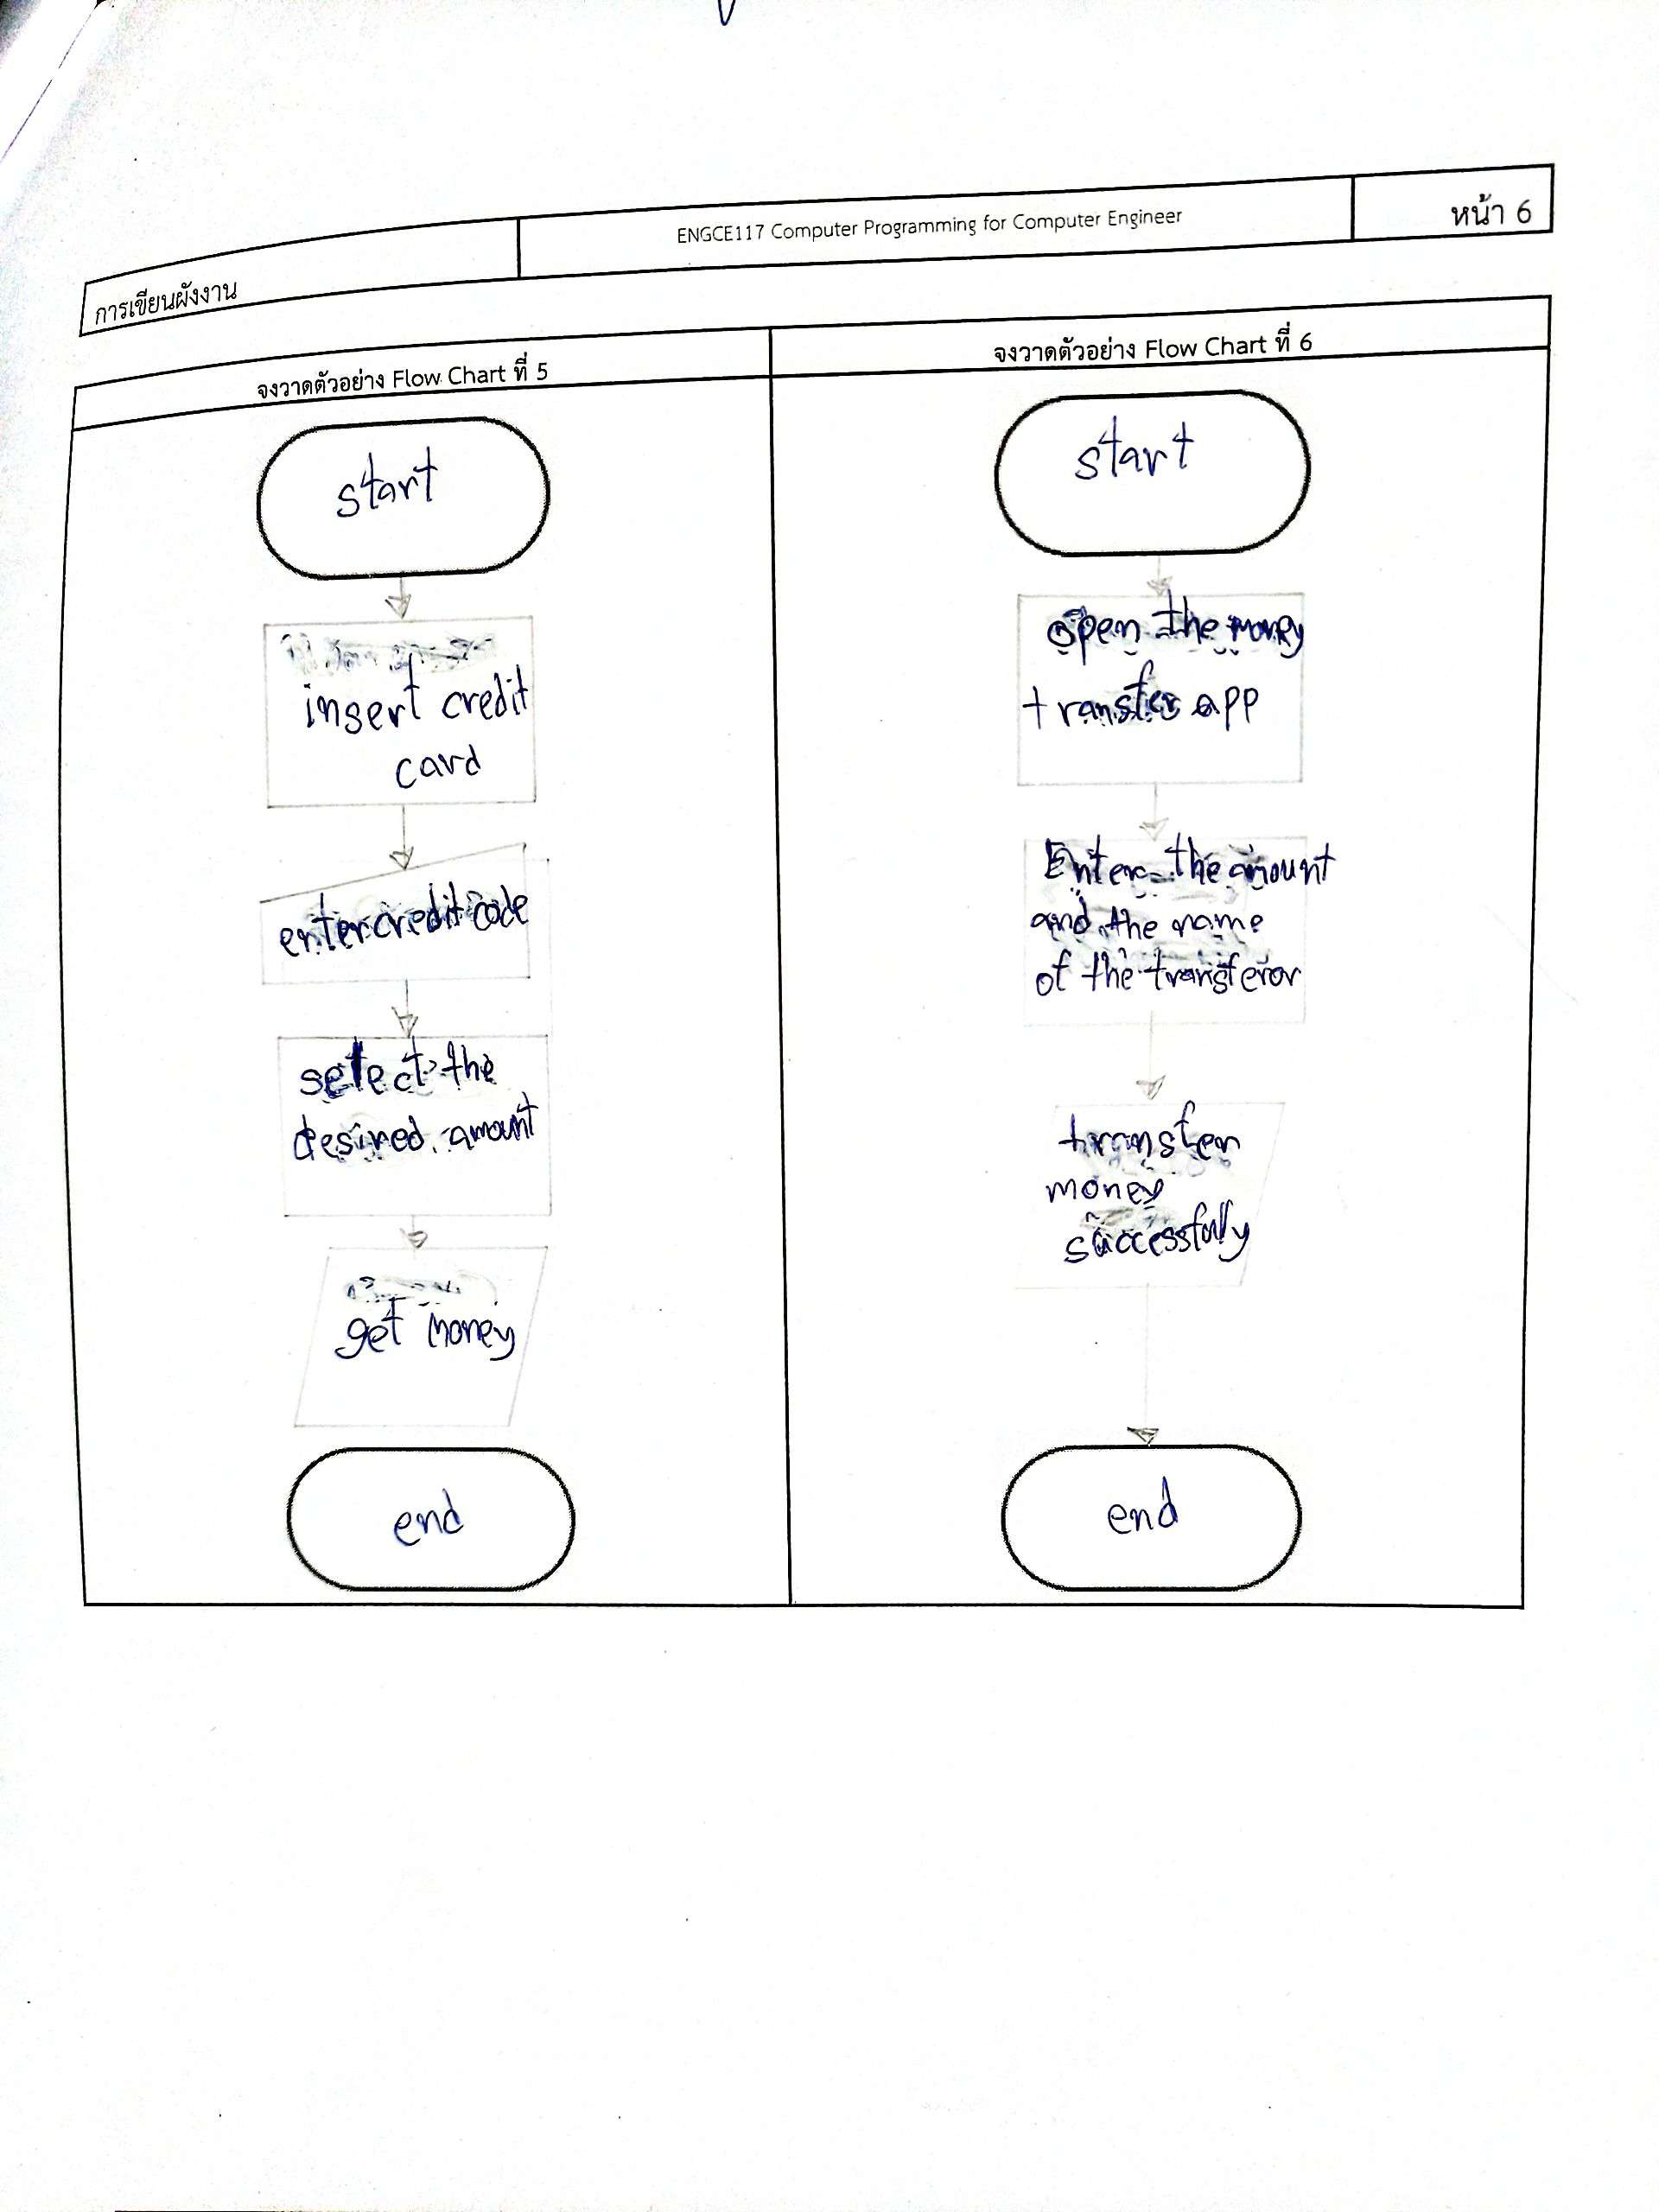 การเขียนผังงาน
ENGCE117 Computer Programming for Computer Engineer
หน้า 6
จงวาดตัวอย่าง Flow Chart ที่ 5
start
insert credit
card
enter credit code
select the
desired amount
get money
end
จงวาดตัวอย่าง Flow Chart ที่ 6
start
open the money
transfer app
Enter the amount
and the name
of the transferor
transfer
money
successfully
end